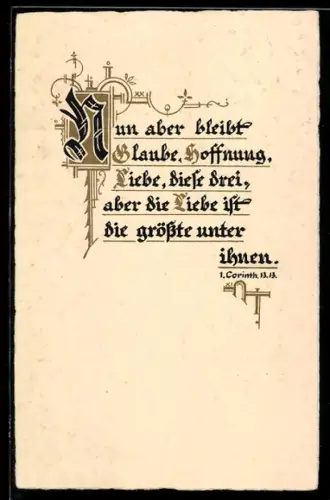 Nun aber bleibt
Glaube, Hoffnung,
Liebe, diese drei,
aber die Liebe ist
die größte unter
ihnen.
1. Corinth. 13.13.